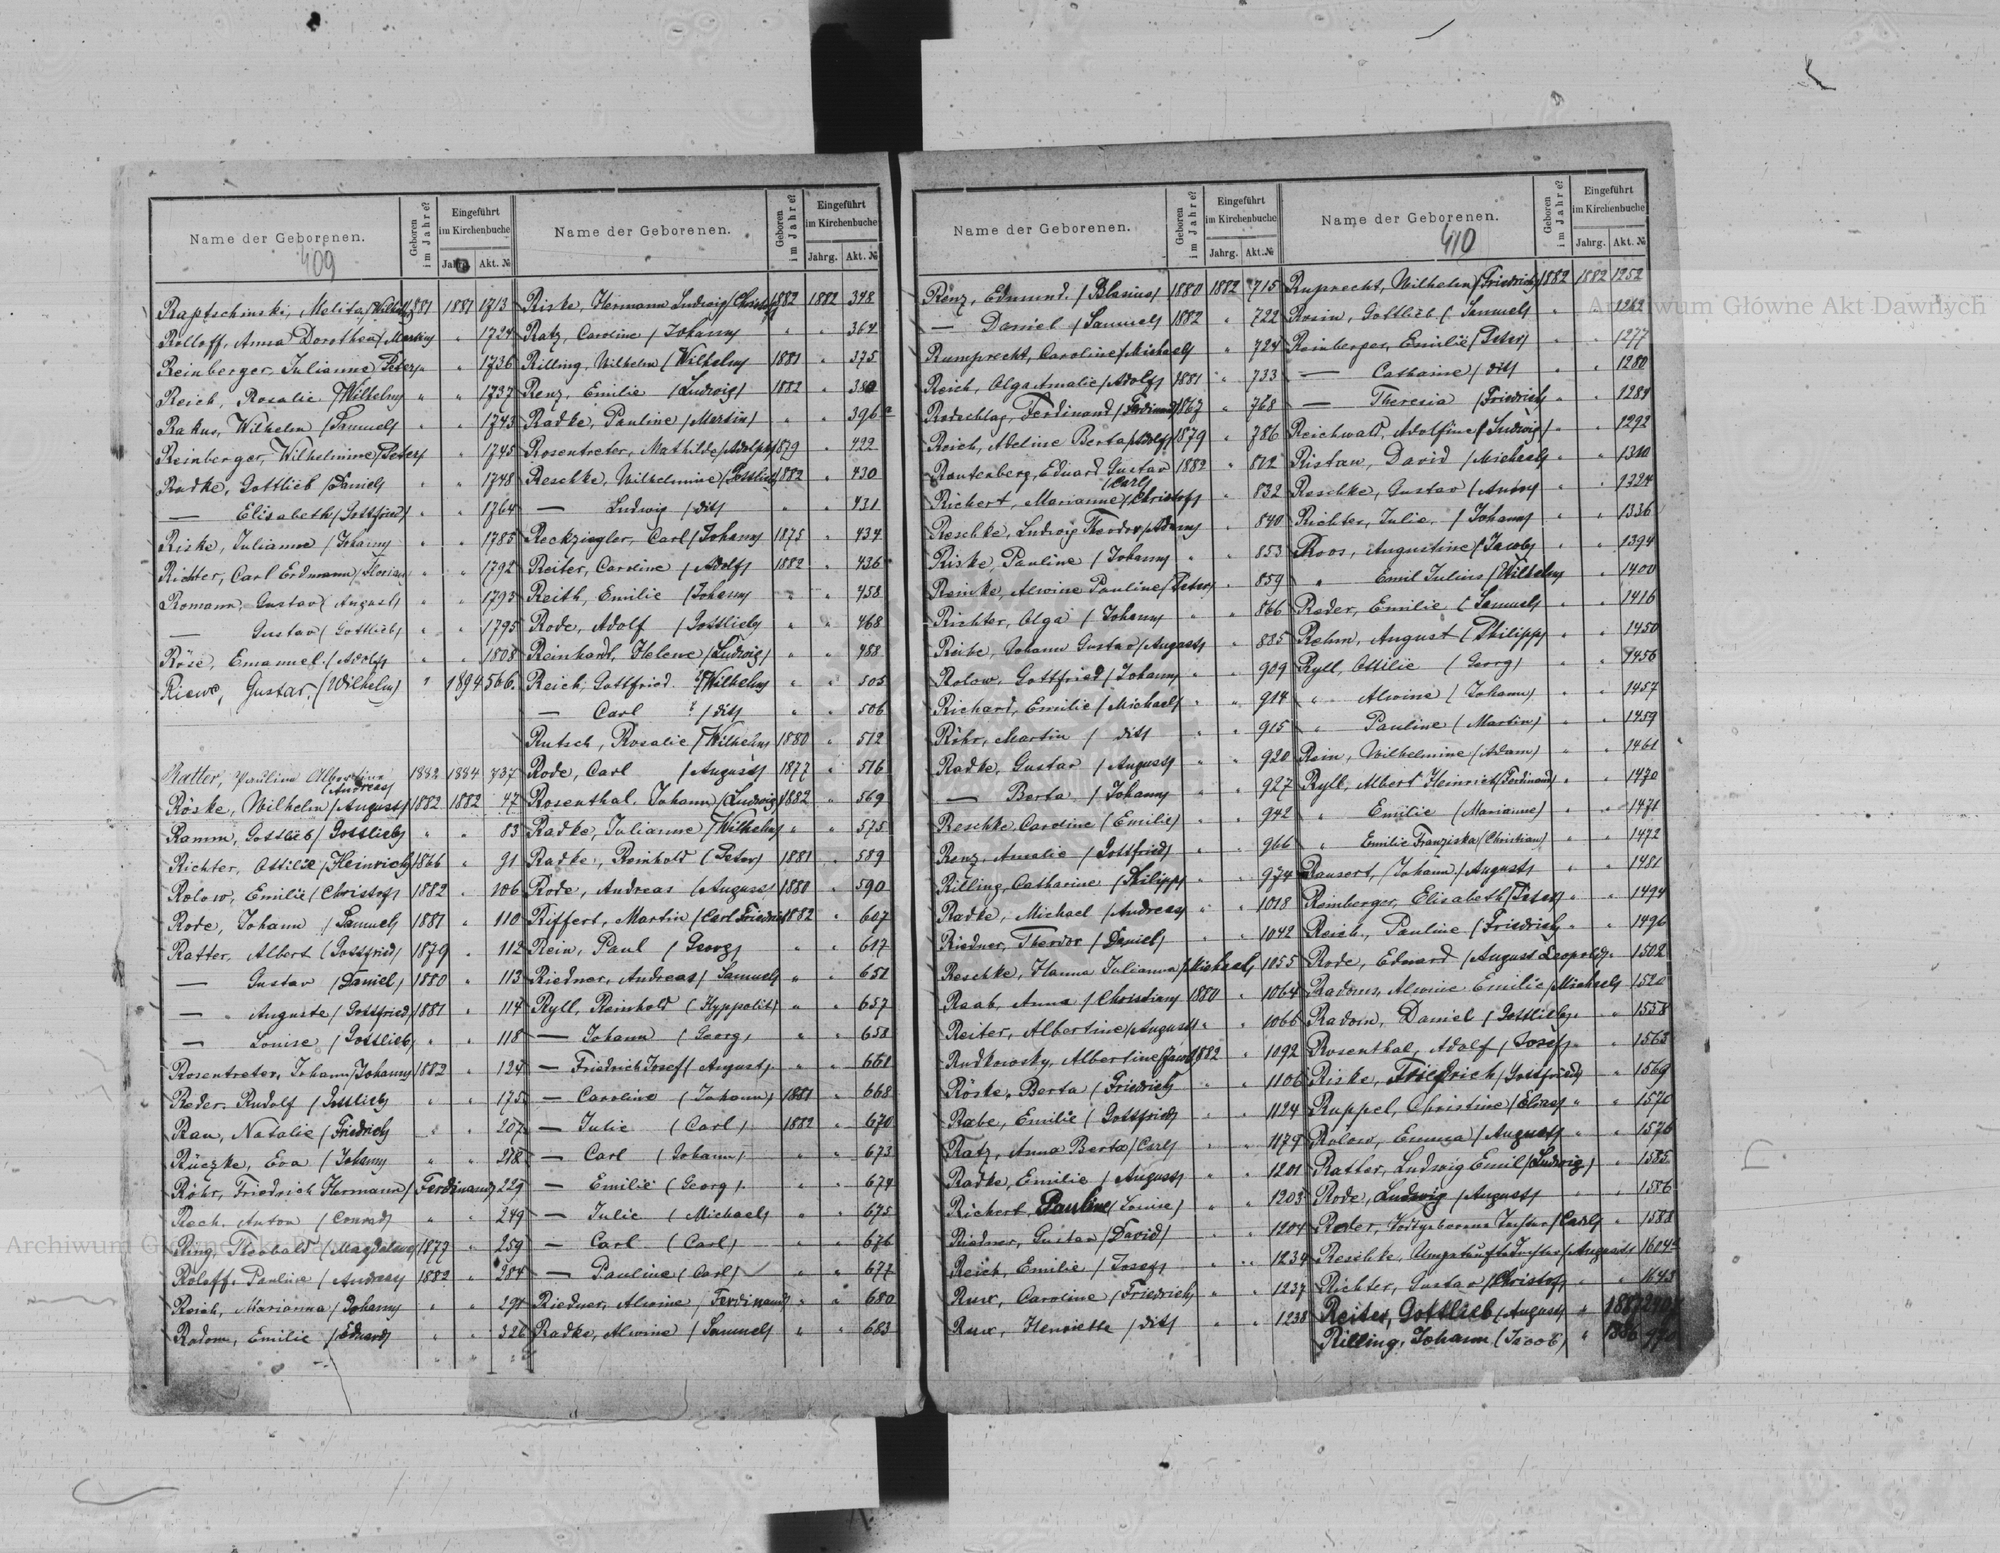 Name der Geborenen.
409
Geboren im Jahre?
Eingeführt im Kirchenbuche
Jahrg. Akt. №
Raptschinski, Melita /Wilhelm/ 1881 1881 1713
Rolloff, Anna Dorothea /Martin/ " 1724
Reinberger, Julianne /Peter/ " " 1736
Reich, Rosalie /Wilhelm/ " " 1737
Rakus, Wilhelm /Samuel/ " " 1743
Reinberger, Wilhelmine /Peter/ " 1745
Radke, Gottlieb /Daniel/ " " 1748
— Elisabeth /Gottfried/ " " 1764
Riske, Julianne /Johann/ " " 1785
Richter, Carl Erdmann /Florian/ " " 1792
Romann, Gustav /August/ " " 1793
— Gustav /Gottlieb/ " " 1795
Röse, Emanuel /Adolf/ " " 1808
Riewe, Gustav (Wilhelm) " 1894 566.
Ratter, Pauline Albertine /Andreas/ 1882 1884 737
Röske, Wilhelm /August/ 1882 1882 47
Ramm, Gottlieb /Gottlieb/ " " 83
Richter, Ottilie /Heinrich/ 1866 " 91
Rolow, Emilie /Christof/ 1882 " 106
Rode, Johann /Samuel/ 1881 " 110
Ratter, Albert /Gottfried/ 1879 " 112
— Gustav /Daniel/ 1880 " 113
— Auguste /Gottfried/ 1881 " 114
— Louise /Gottlieb/ " " 118
Rosentreter, Johann /Johann/ 1882 " 124
Reder, Rudolf /Gottlieb/ " " 175
Rau, Natalie /Friedrich/ " " 207
Rüczke, Eva /Johann/ " " 218
Röhr, Friedrich Hermann /Ferdinand/ 229
Rech, Anton /Conrad/ " " 249
Ring, Theobald /Magdalena/ 1877 " 259
Roloff, Pauline /Andreas/ 1882 " 284
Reich, Marianna /Johann/ " " 294
Radom, Emilie /Eduard/ " " 326
Name der Geborenen.
Geboren im Jahre?
Eingeführt im Kirchenbuche
Jahrg. Akt. №
Riske, Hermann Ludwig /Christof/ 1882 1882 348
Ratz, Caroline /Johann/ " " 364
Rilling, Wilhelm /Wilhelm/ 1881 " 375
Renz, Emilie /Ludwig/ 1882 " 380
Radke, Pauline /Martin/ " " 396
Rosentreter, Mathilde /Adolph/ 1879 " 422
Reschke, Wilhelmine /Gottlieb/ 1882 " 430
— Ludwig /dit/ " " 431
Reckziegler, Carl /Johann/ 1875 " 434
Reiter, Caroline /Adolf/ 1882 " 436
Reith, Emilie /Johann/ " " 458
Rode, Adolf /Gottlieb/ " " 468
Reinhard, Helene /Ludwig/ " " 488
Reich, Gottfried /Wilhelm/ " " 505
— Carl /dit/ " " 506
Rutsch, Rosalie /Wilhelm/ 1880 " 512
Rode, Carl /August/ 1877 " 516
Rosenthal, Johann /Ludwig/ 1882 " 569
Radke, Julianne /Wilhelm/ " " 575
Radke, Reinhold (Peter) 1881 " 589
Rode, Andreas /August/ 1880 " 590
Riffert, Martin /Carl Friedrich/ 1882 " 607
Rein, Paul /Georg/ " " 617
Riedner, Andreas /Samuel/ " " 651
Ryll, Reinhold (Hyppolit) " " 657
— Johann (Georg) " " 658
— Friedrich Josef (August) " " 661
— Caroline (Johann) 1881 " 668
— Julie (Carl) 1882 " 670
— Carl (Johann) " " 673
— Emilie (Georg) " " 674
— Julie (Michael) " " 675
— Carl (Carl) " " 676
— Pauline (Carl) " " 677
Riedner, Alwine /Ferdinand/ " " 680
Radke, Alwine /Samuel/ " " 683
Name der Geborenen.
Geboren im Jahre?
Eingeführt im Kirchenbuche
Jahrg. Akt. №
Renz, Edmund /Blasius/ 1880 1882 715
— Daniel /Samuel/ 1882 " 722
Rumprecht, Caroline /Michael/ " 724
Reich, Olga Amalie /Adolf/ 1881 " 733
Rodschlag, Ferdinand /Ferdinand/ 1867 " 768
Reich, Adeline Berta /Adolf/ 1879 " 786
Rautenberg, Eduard Gustav /Carl/ 1882 " 812
Richert, Marianne /Christof/ " 832
Reschke, Ludwig Theodor /Adam/ " 840
Riske, Pauline /Johann/ " " 853
Reinke, Alwine Pauline /Peter/ " 859
Richter, Olga /Johann/ " " 866
Reibe, Johann Gustav /August/ " 885
Rolow, Gottfried /Johann/ " " 909
Richard, Emilie /Michael/ " " 914
Röhr, Martin /dit/ " " 915
Radke, Gustav /August/ " " 920
— Berta /Johann/ " " 927
Reschke, Caroline (Emilie) " " 942
Renz, Amalie /Gottfried/ " " 966
Rilling, Catharine /Philipp/ " " 974
Radke, Michael /Andreas/ " " 1018
Riedner, Theodor /Daniel/ " " 1042
Reschke, Hanna Julianna /Michael/ 1055
Raab, Anna /Christian/ 1880 " 1064
Reiter, Albertine /August/ " " 1066
Rudkowsky, Albertine 1882 " 1092
Röske, Berta /Friedrich/ " " 1106
Rabe, Emilie /Gottfried/ " " 1124
Ratz, Anna Berta /Carl/ " " 1179
Radke, Emilie /August/ " " 1201
Richert, Pauline /Louise/ " " 1203
Riedner, Gustav /David/ " " 1204
Reich, Emilie /Josef/ " " 1234
Rux, Caroline /Friedrich/ " " 1237
Rux, Henriette /dit/ " " 1238
Name der Geborenen.
410
Geboren im Jahre?
Eingeführt im Kirchenbuche
Jahrg. Akt. №
Ruprecht, Wilhelm /Friedrich/ 1882 1882 1252
Rosin, Gottlieb /Samuel/ " " 1262
Reinberger, Emilie /Peter/ " " 1277
— Catharine /dit/ " " 1280
— Theresia /Friedrich/ " " 1289
Reichwald, Adolfine /Ludwig/ " " 1292
Ristau, David /Michael/ " " 1310
Reschke, Gustav /Anton/ " " 1324
Richter, Julie /Johann/ " " 1336
Roos, Augustine /Jacob/ " " 1394
" Emil Julius /Wilhelm/ " 1400
Reder, Emilie /Samuel/ " " 1416
Rehm, August /Philipp/ " " 1450
Ryll, Ottilie (Georg) " " 1456
" Alwine (Johann) " " 1457
" Pauline (Martin) " " 1459
Rein, Wilhelmine /Adam/ " " 1461
Ryll, Albert Heinrich /Ferdinand/ " " 1470
" Emilie (Marianne) " " 1471
" Emilie Franziska /Christian/ " " 1472
Rausert, Johann /August/ " " 1481
Reinberger, Elisabeth /Peter/ " " 1494
Reich, Pauline /Friedrich/ " " 1496
Rode, Eduard /August Leopold/ " 1502
Radoms, Alwine Emilie /Michael/ 1520
Radom, Daniel /Gottlieb/ " " 1558
Rosenthal, Adolf /Josef/ " " 1563
Riske, Friedrich /Gottfried/ " 1569
Ruppel, Christine /Elias/ " " 1570
Rolow, Emma /August/ " " 1576
Ratter, Ludwig Emil /Ludwig/ " 1585
Rode, Ludwig /August/ " " 1586
Reder, Todtgeborene Tochter /Carl/ " 1588
Reschke, Ungetaufte Tochter /August/ 1604
Richter, Gustav /Christof/ " " 1643
Reiter, Gottlieb /August/ " 1887
Rilling, Johann (Jacob) " 1886 970
Archiwum Główne Akt Dawnych
Archiwum Główne Akt Dawnych